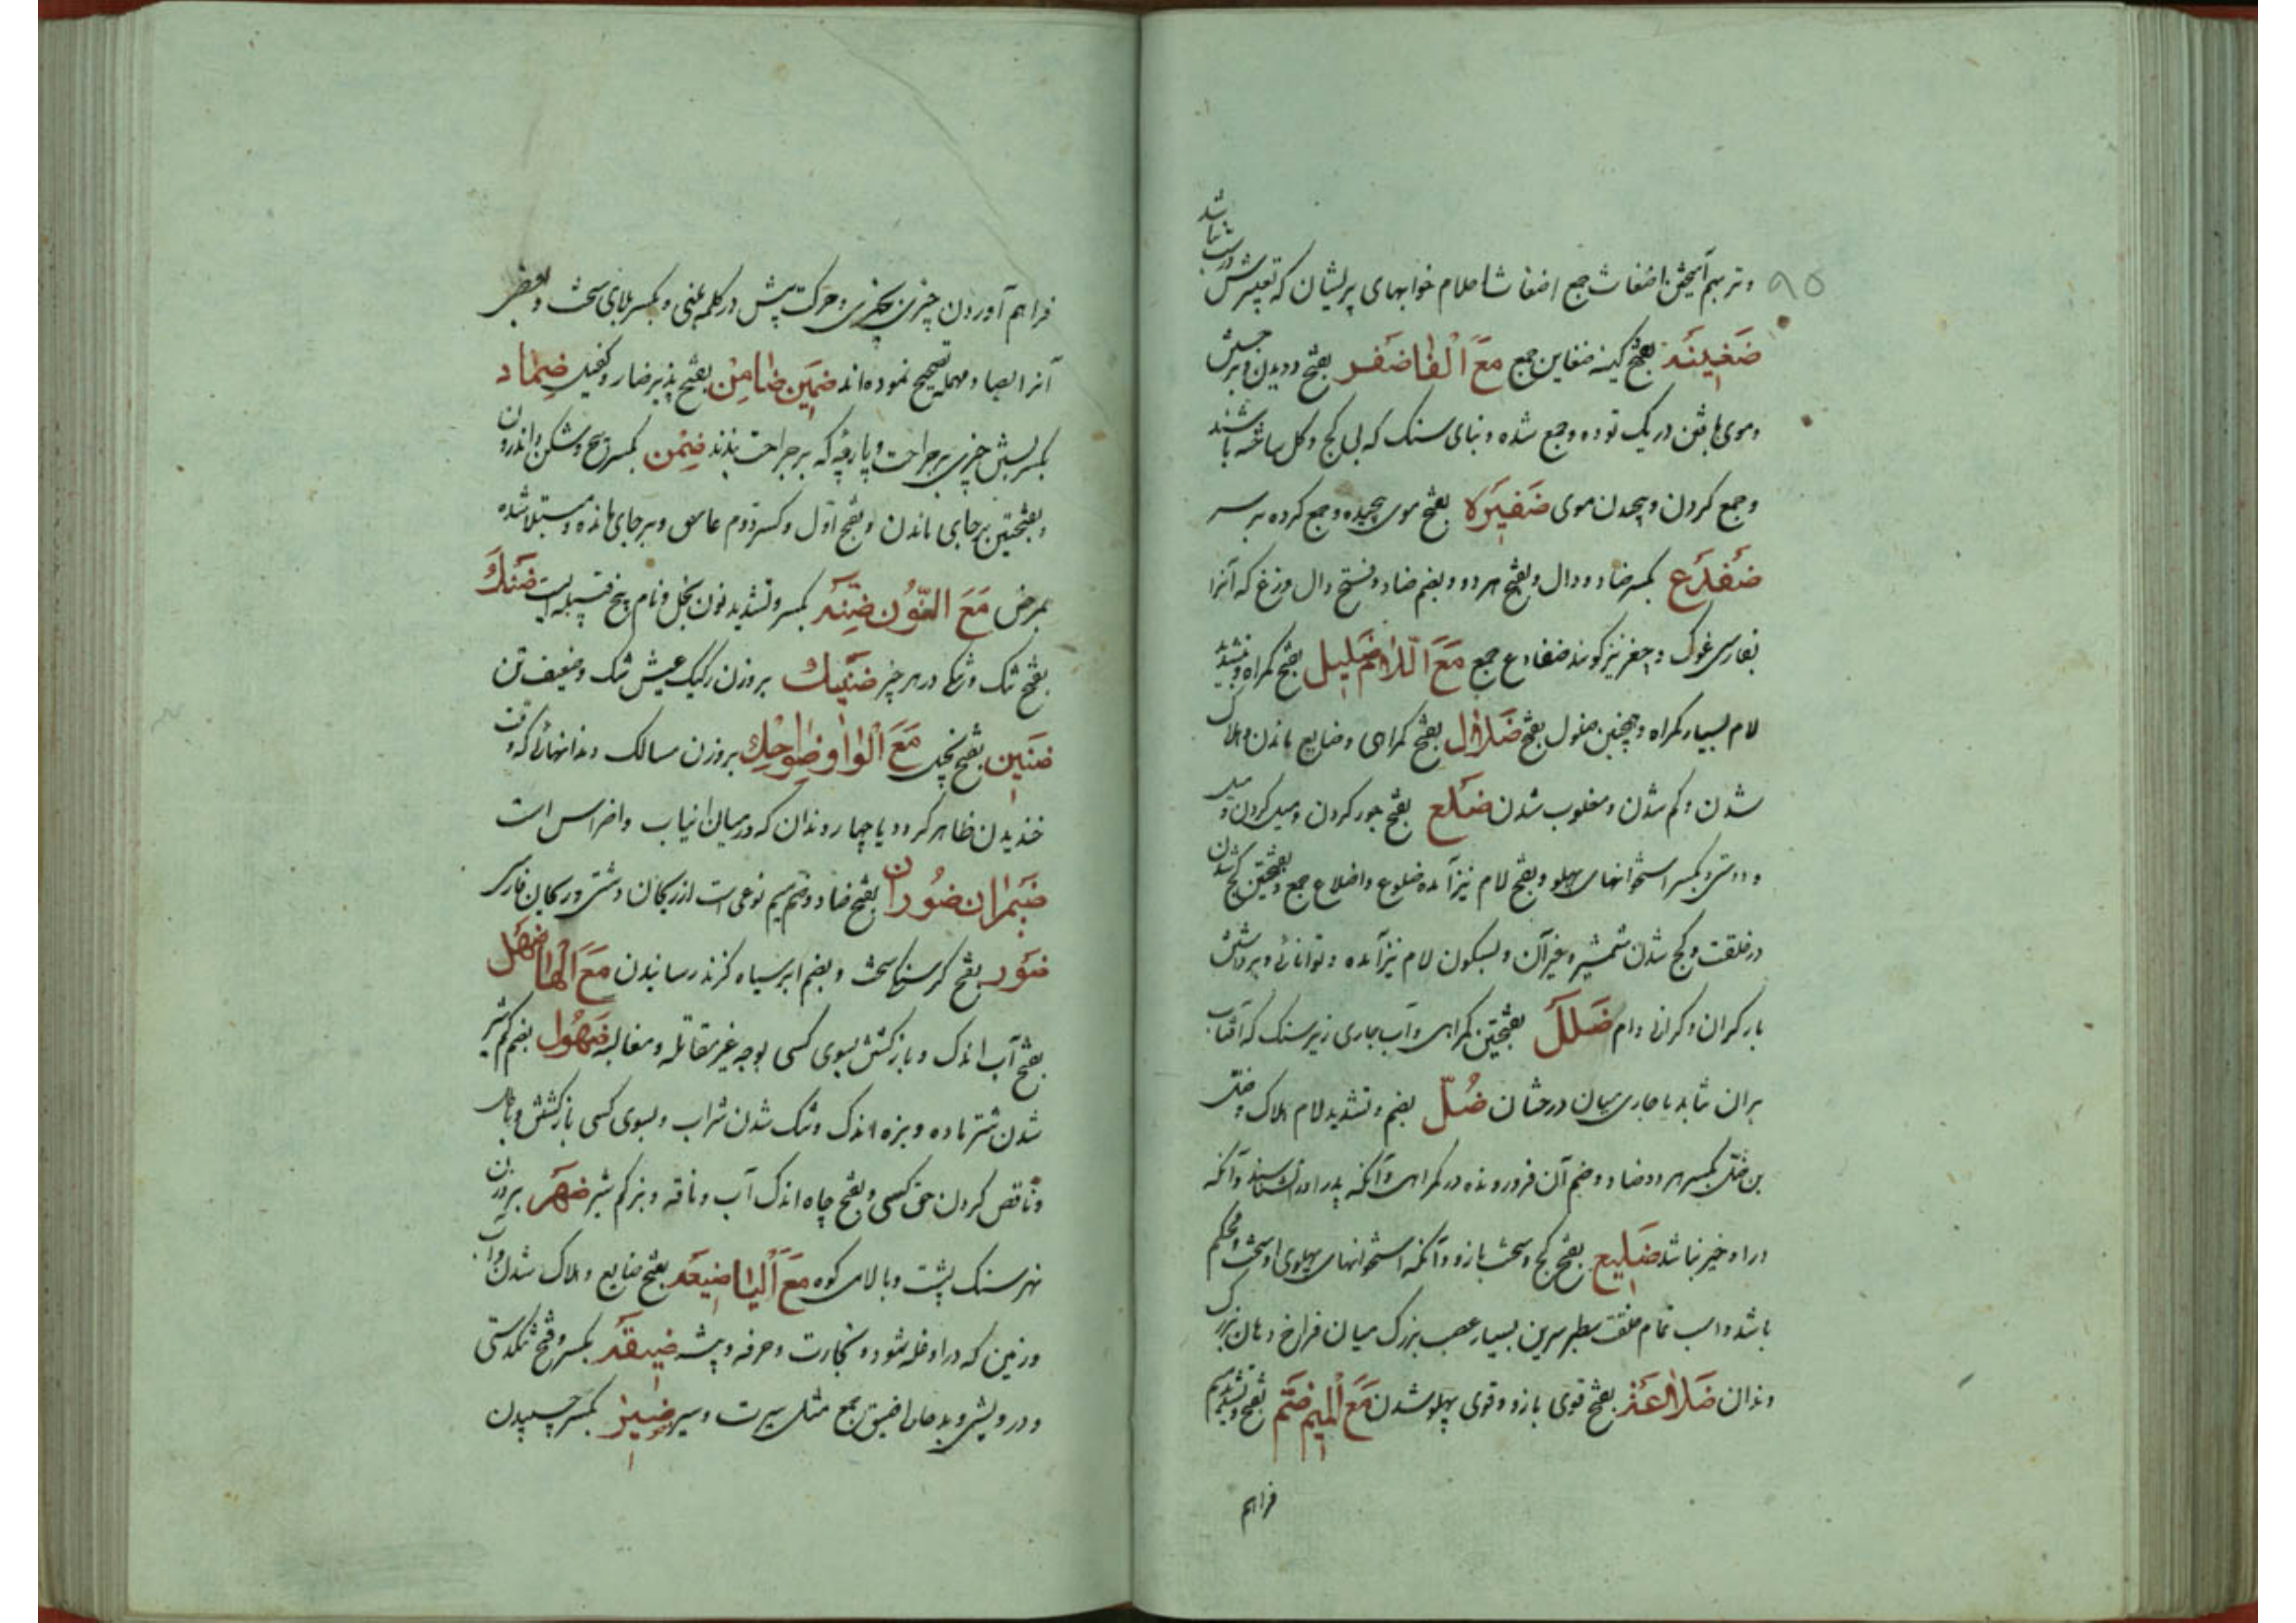 ۹۵
وتر بهم آمیختن اضغاث جمع اضغاث احلام خوابهای پریشان که تعبیرش درست نباشد
ضَغِینَه بفتح کینه ضغاین جمع مَعَ الْفا ضَفر بفتح دویدن و برجستن
وموی بافتن در یک توده وجمع شده وبنای سنک که بی کج وکل ساخته باشند
وجمع کردن وپیچیدن موی ضَفِیرَه بفتح موی پیچیده وجمع کرده بر سر
ضفدع بکسر ضاد ودال وبفتح هر دو وبضم ضاد وفتح دال وزغ که آنرا
بفارسی غوک وچغز نیز کویند ضفادع جمع مَعَ الّلام ضَلِیل بفتح کمراه وبتشدید
لام بسیار کمراه وهمچنین ضلول بفتح ضَلال بفتح کمراهی وضایع ماندن وهلاک
شدن وکم شدن ومغلوب شدن ضَلع بفتح جور کردن ومیل کردن
ودوستی وبکسر استخوانهای پهلو وبفتح لام نیز آمده ضلوع واضلاع جمع وبفتحتین کج شدن
در خلقت وکج شدن شمشیر وغیر آن وبسکون لام نیز آمده وتوانائی وبرداشتن
بار کران وکرانی وام ضَلَل بفتحتین کمراهی وآب جاری زیر سنک که آفتاب
بران نتابد یا جاری میان درختان ضُلّ بضم وتشدید لام هلاک وضل
بن ضل بکسر هر دو ضاد وضم آن فرورونده در کمراهی وآنکه پدر اورا نشناسند وآنکه
دراو خیر نباشد ضَلِیع بفتح کج وسخت بازو وآنکه استخوانهای پهلوی او سخت ومحکم
باشد واسب تمام خلقت سطبر سرین بسیار عصب بزرک میان فراخ دهان بزرک
دندان ضَلاعَة بفتح قوی بازو وقوی پهلو شدن مَعَ الْمِیم ضَمّ بفتح وتشدید میم
فراهم
فراهم آوردن چیزی بچیزی وحرکت پیش در کلمه مبنی وبکسر بلای سخت وبعضی
آنرا بصاد مهمله تصحیح نموده اند ضَمِین ضامِن بفتح پذیرفتار وکفیل ضِماد
بکسر بستن چیزی بر جراحت وپارچه که بر جراحت بندند ضِمْن بکسر وشکن واندرون
وبفتحتین برجای ماندن وبفتح اوّل وکسر دوم عاشق وبرجای مانده ومبتلا شده
بمرض مَعَ النُّون ضِنَّه بکسر وتشدید نون بخل ونام پنج قبیله است ضَنْك
بفتح تنک وتنکی در هر چیز ضَنِیك بروزن رکیک عیش تنک وضعیف تن
ضَنِین بفتح بخیل مَعَ الْواو ضَواحِك بروزن مسالک دندانهائی که وقت
خندیدن ظاهر کردد یا چهار دندان که در میان انیاب واضراس است
ضَیمران ضوران بفتح ضاد وضم میم نوعی است از ریحان دشتی وریحان فارسی
ضَوْر بفتح کرسنکی سخت وبضم ابر سیاه کزند رسانیدن مَعَ الْها ضَهْل
بفتح آب اندک وبازکشتن بسوی کسی بوجه غیر مقاتله ومغالبه ضُهُول بضم کم شیر
شدن شتر ماده وبزه اندک وتنک شدن شراب وبسوی کسی بازکشتن
وناقص کردن حق کسی وبفتح چاه اندک آب وناقه وبز کم شیر ضَهْر بروزن
نهر سنک پشت وبالای کوه مَعَ الْیا ضَیعَه بفتح ضایع وهلاک شدن وآب
وزمین که دراو غله شود وتجارت وحرفه وپیشه ضِیقَه بکسر وفتح تنکدستی
ودرویشی وبدحال اضیق جمع مثل سیرت وسیر ضیز بکسر چسپیدن